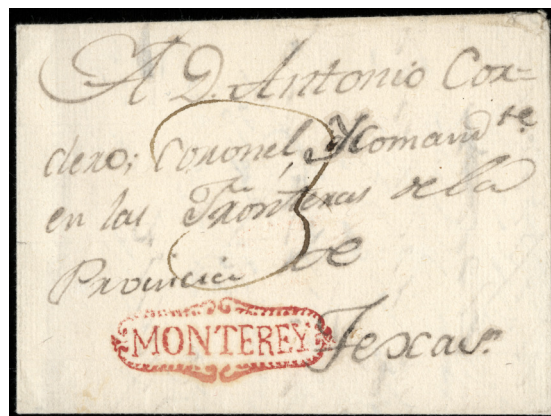 A D. Antonio Cor=
dero; Coronel, y Comandte
en las Fronteras de la
Provincia de
Texas.
3
MONTEREY